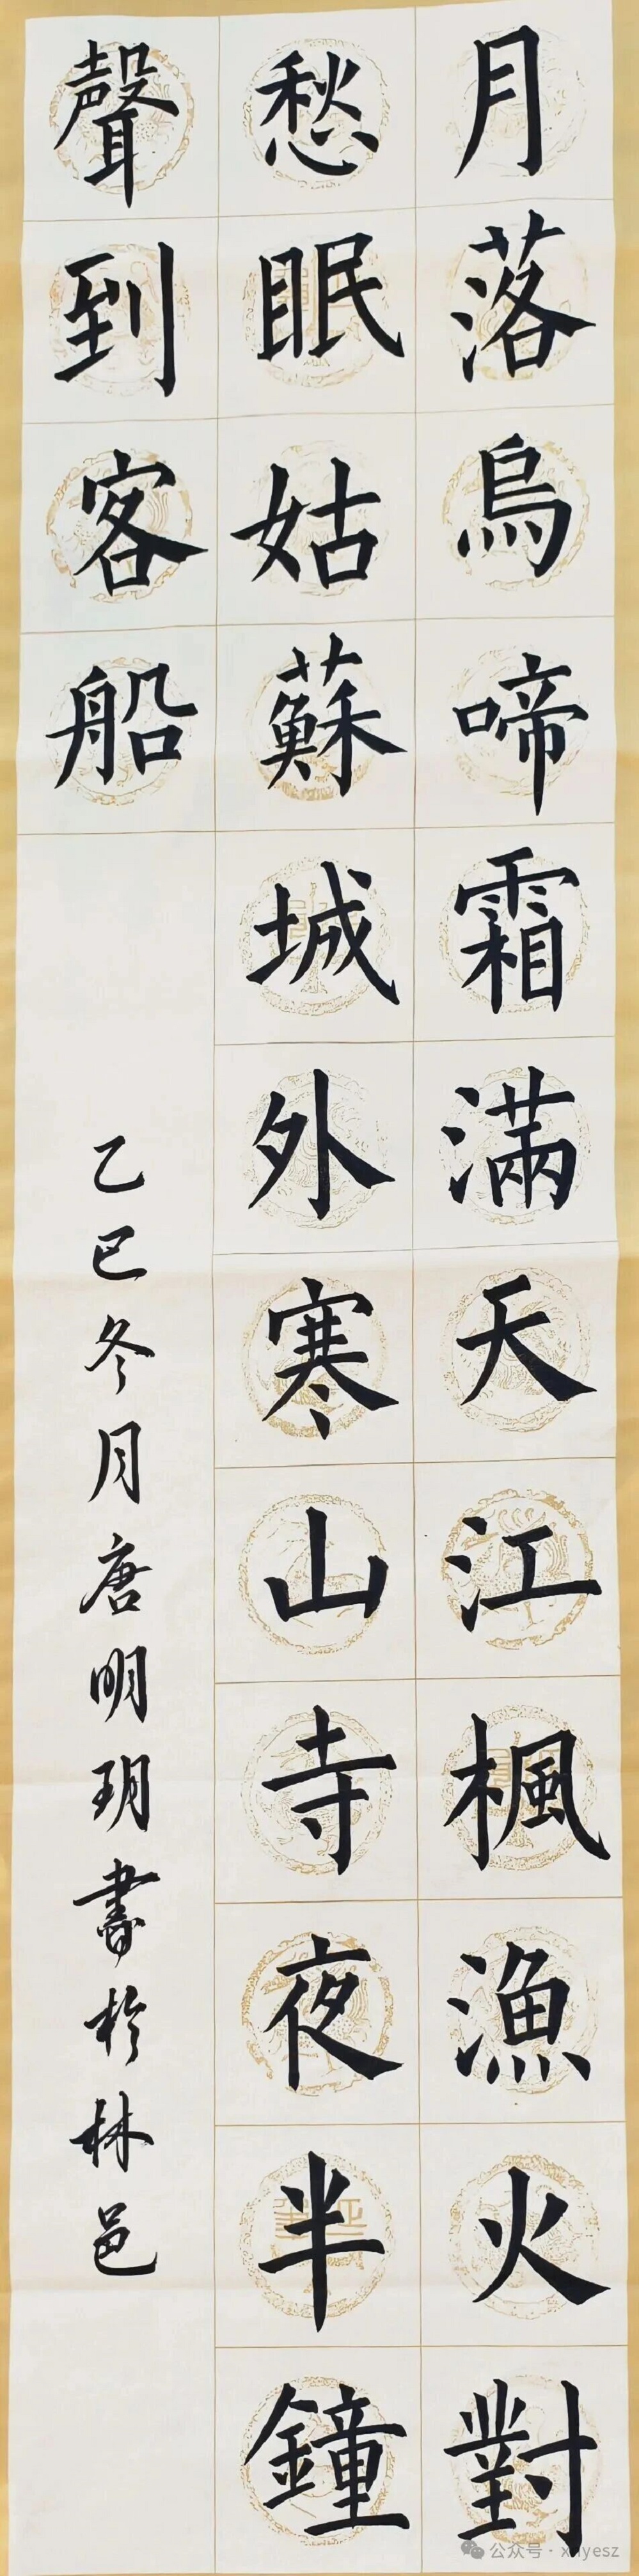 月落烏啼霜滿天江楓漁火對
愁眠姑蘇城外寒山寺夜半鐘
聲到客船
乙巳冬月唐明玥書於林邑
公众号·xhyesz